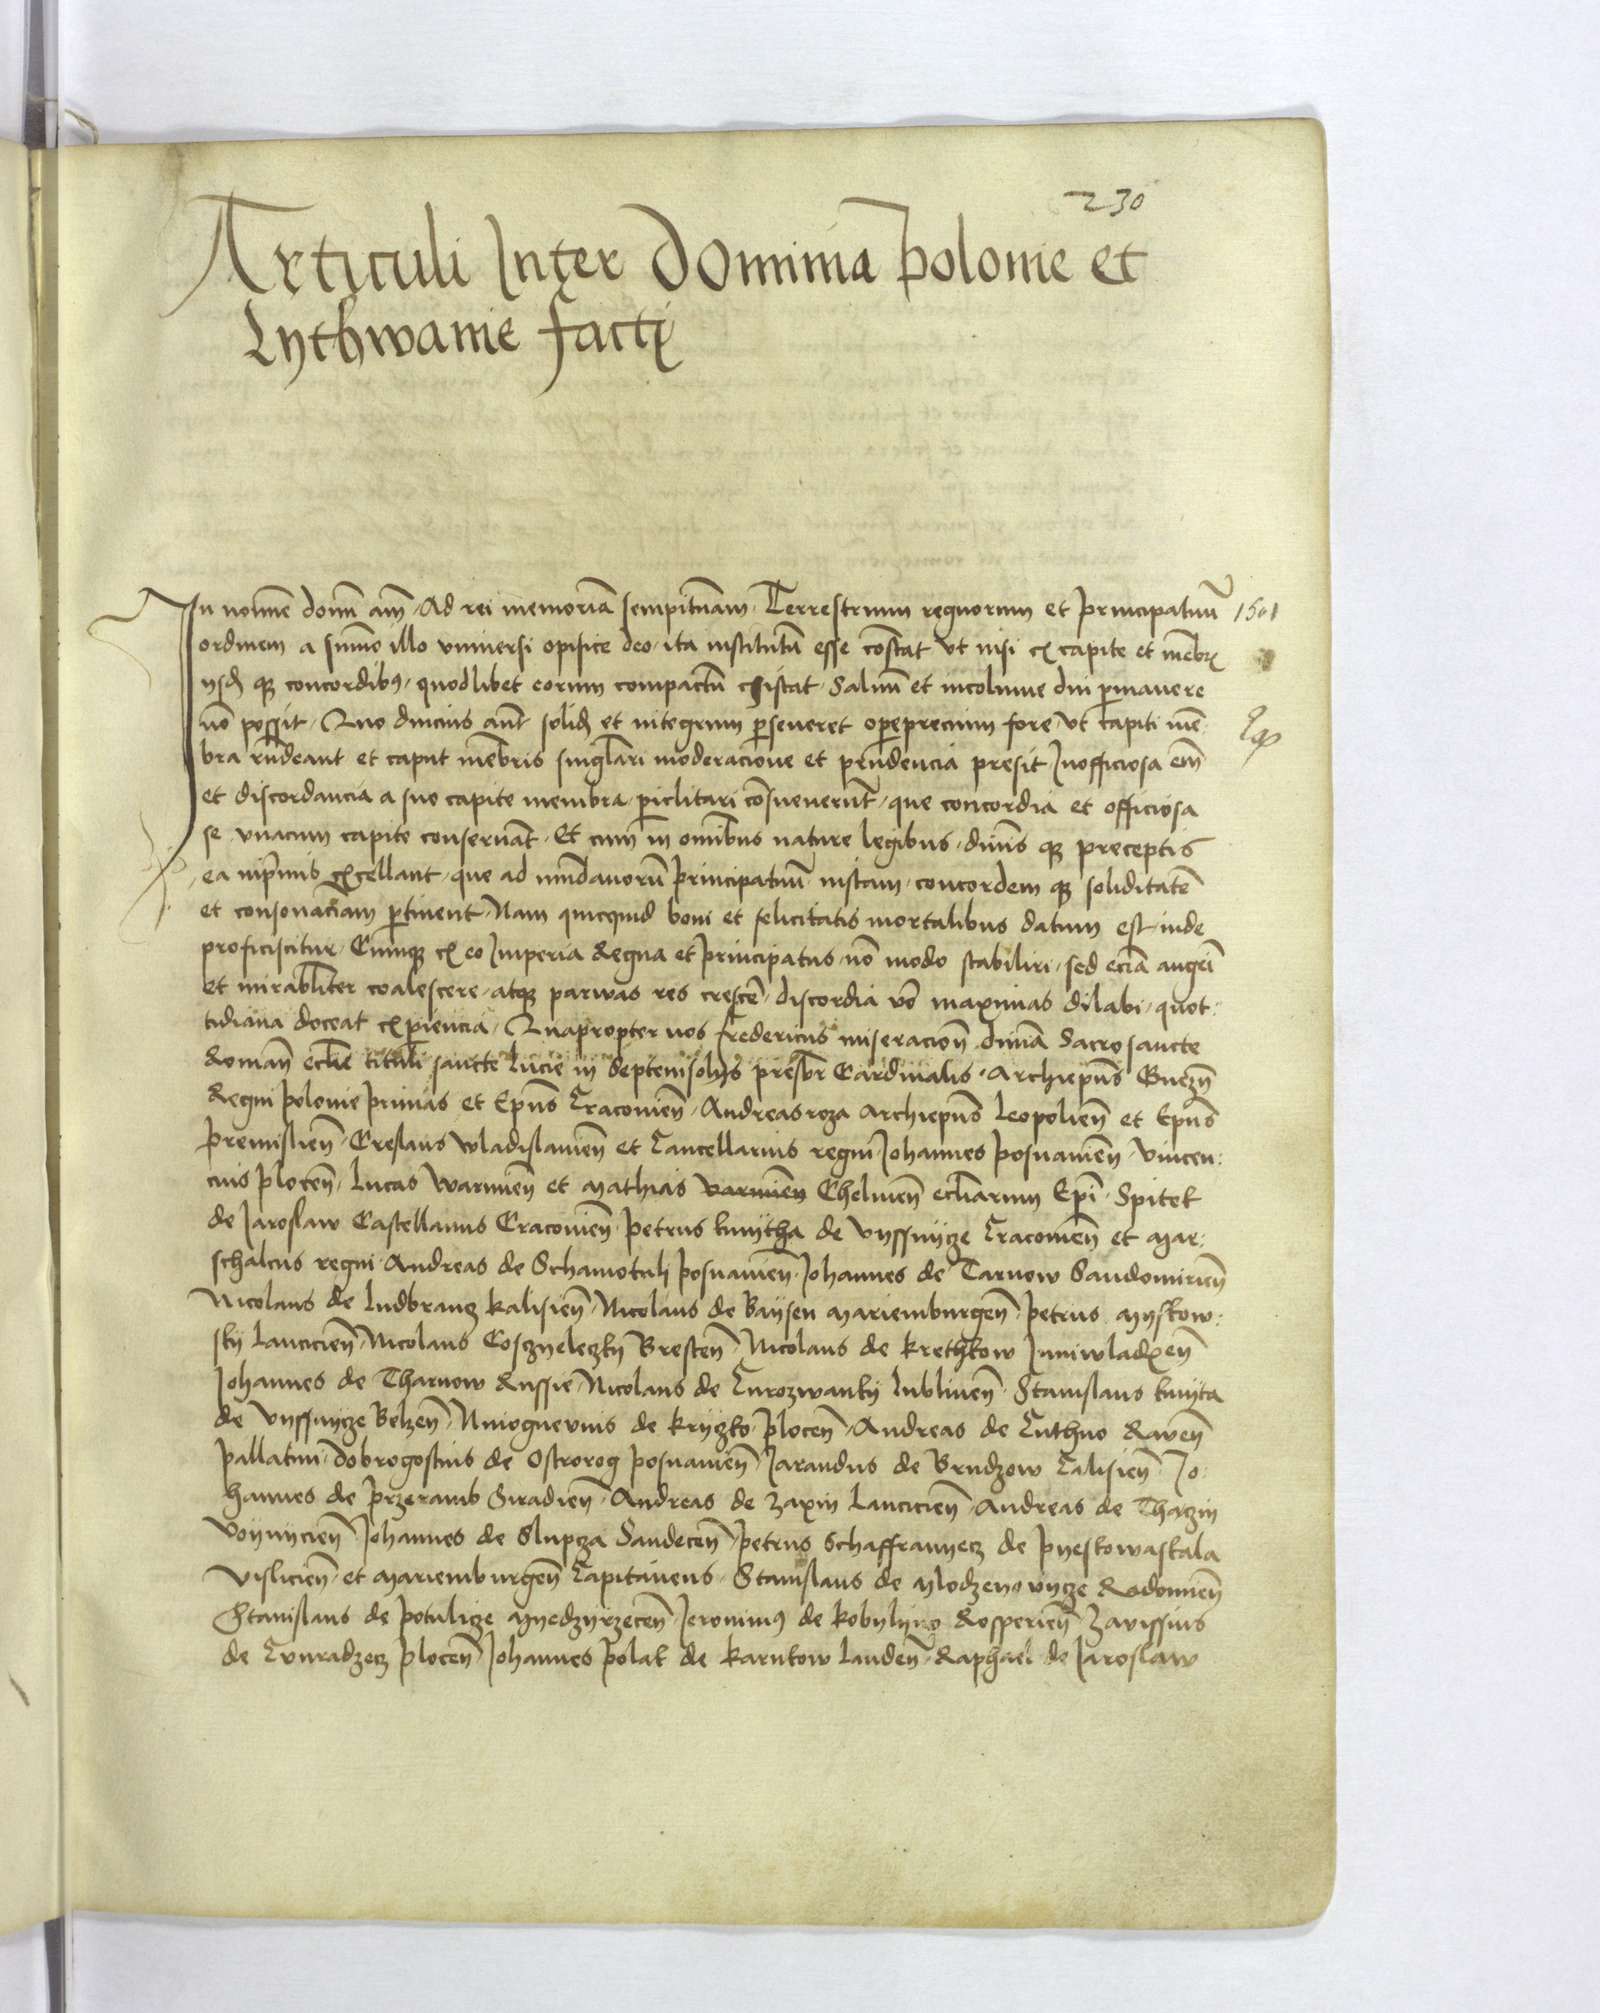 230
Articuli Inter Dominia Polonie et
Lythwanie facti
In nomine domini amen Ad rei memoriam sempiternam Terrestrium regnorum et principatuum 1501
ordinem a summo illo universi opifice deo ita institutum esse constat ut nisi ex capite et membris
iisdem que concordibus quodlibet eorum compactum existat Salvum et incolume diu permanere
non possit Quo diucius autem solidum et integrum perseveret opereprecium fore ut capiti mem
bra respondeant et caput membris singulari moderacione et prudencia presit Inofficiosa enim
et discordancia a suo capite membra periclitari consueverunt que concordia et officiosa
se unacum capite conservant Et cum in omnibus nature legibus divinis que preceptis
ea inprimis excellant que ad mundanorum principatuum iustam concordem que soliditatem
et consonanciam pertinent Nam quicquid boni et felicitatis mortalibus datum est inde
proficiscitur Cumque ex eo Imperia Regna et principatus non modo stabiliri sed eciam augeri
et mirabiliter coalescere atque parvas res crescere discordia vero maximas dilabi quot
tidiana doceat experiencia Quapropter nos Fredericus miseracione divina Sacrosancte
Romane ecclesie tituli sancte Lucie in Septemsolys presbiter Cardinalis Archiepiscopus Gneznensis
Regni Polonie primas et Episcopus Cracoviensis Andreas roza Archiepiscopus Leopoliensis et Episcopus
Premisliensis Creslaus Wladislaviensis et Cancellarius regni Johannes Posnaniensis Vincen
cius Plocensis Lucas Warmiensis et Mathias Varmien Chelmensis ecclesiarum Episcopi Spitek
de Jaroslaw Castellanus Cracoviensis Petrus kmytha de Vyssnycze Cracoviensis et Mar
schalcus regni Andreas de Schamotuli Posnaniensis Johannes de Tarnow Sandomiriensis
Nicolaus de Ludbrancz Kalisiensis Nicolaus de Baysen Mariemburgensis Petrus Myskow
sky Lanciciensis Nicolaus Cosczyeleczky Brestensis Nicolaus de Krethkow Juniwladislaviensis
Johannes de Tharnow Russie Nicolaus de Curozwanky Lublinensis Stanislaus kmyta
de Vyssnycze Belzensis Nmiognevus de Kryzko Plocensis Andreas de Cuthno Ravensis
Pallatini Dobrogostius de Ostrorog Posnaniensis Jarandus de Brudzow Calisiensis Jo
hannes de Przeramb Siradiensis Andreas de Zaxin Lanciciensis Andreas de Thaczin
Voynyciensis Johannes de Slupcza Sandecensis Petrus Schaffrannecz de Pyeskowaskala
Visliciensis et Mariemburgensis Capitaneus Stanislaus de Mlodzenowycze Radomiensis
Stanislaus de Potulicze Myedzyrzecensis Jeronimus de Kobylyno Rosperiensis Zavissius
de Cunradzecz Plocensis Johannes Polak de Karnkow Landensis Raphael de Jaroslaw